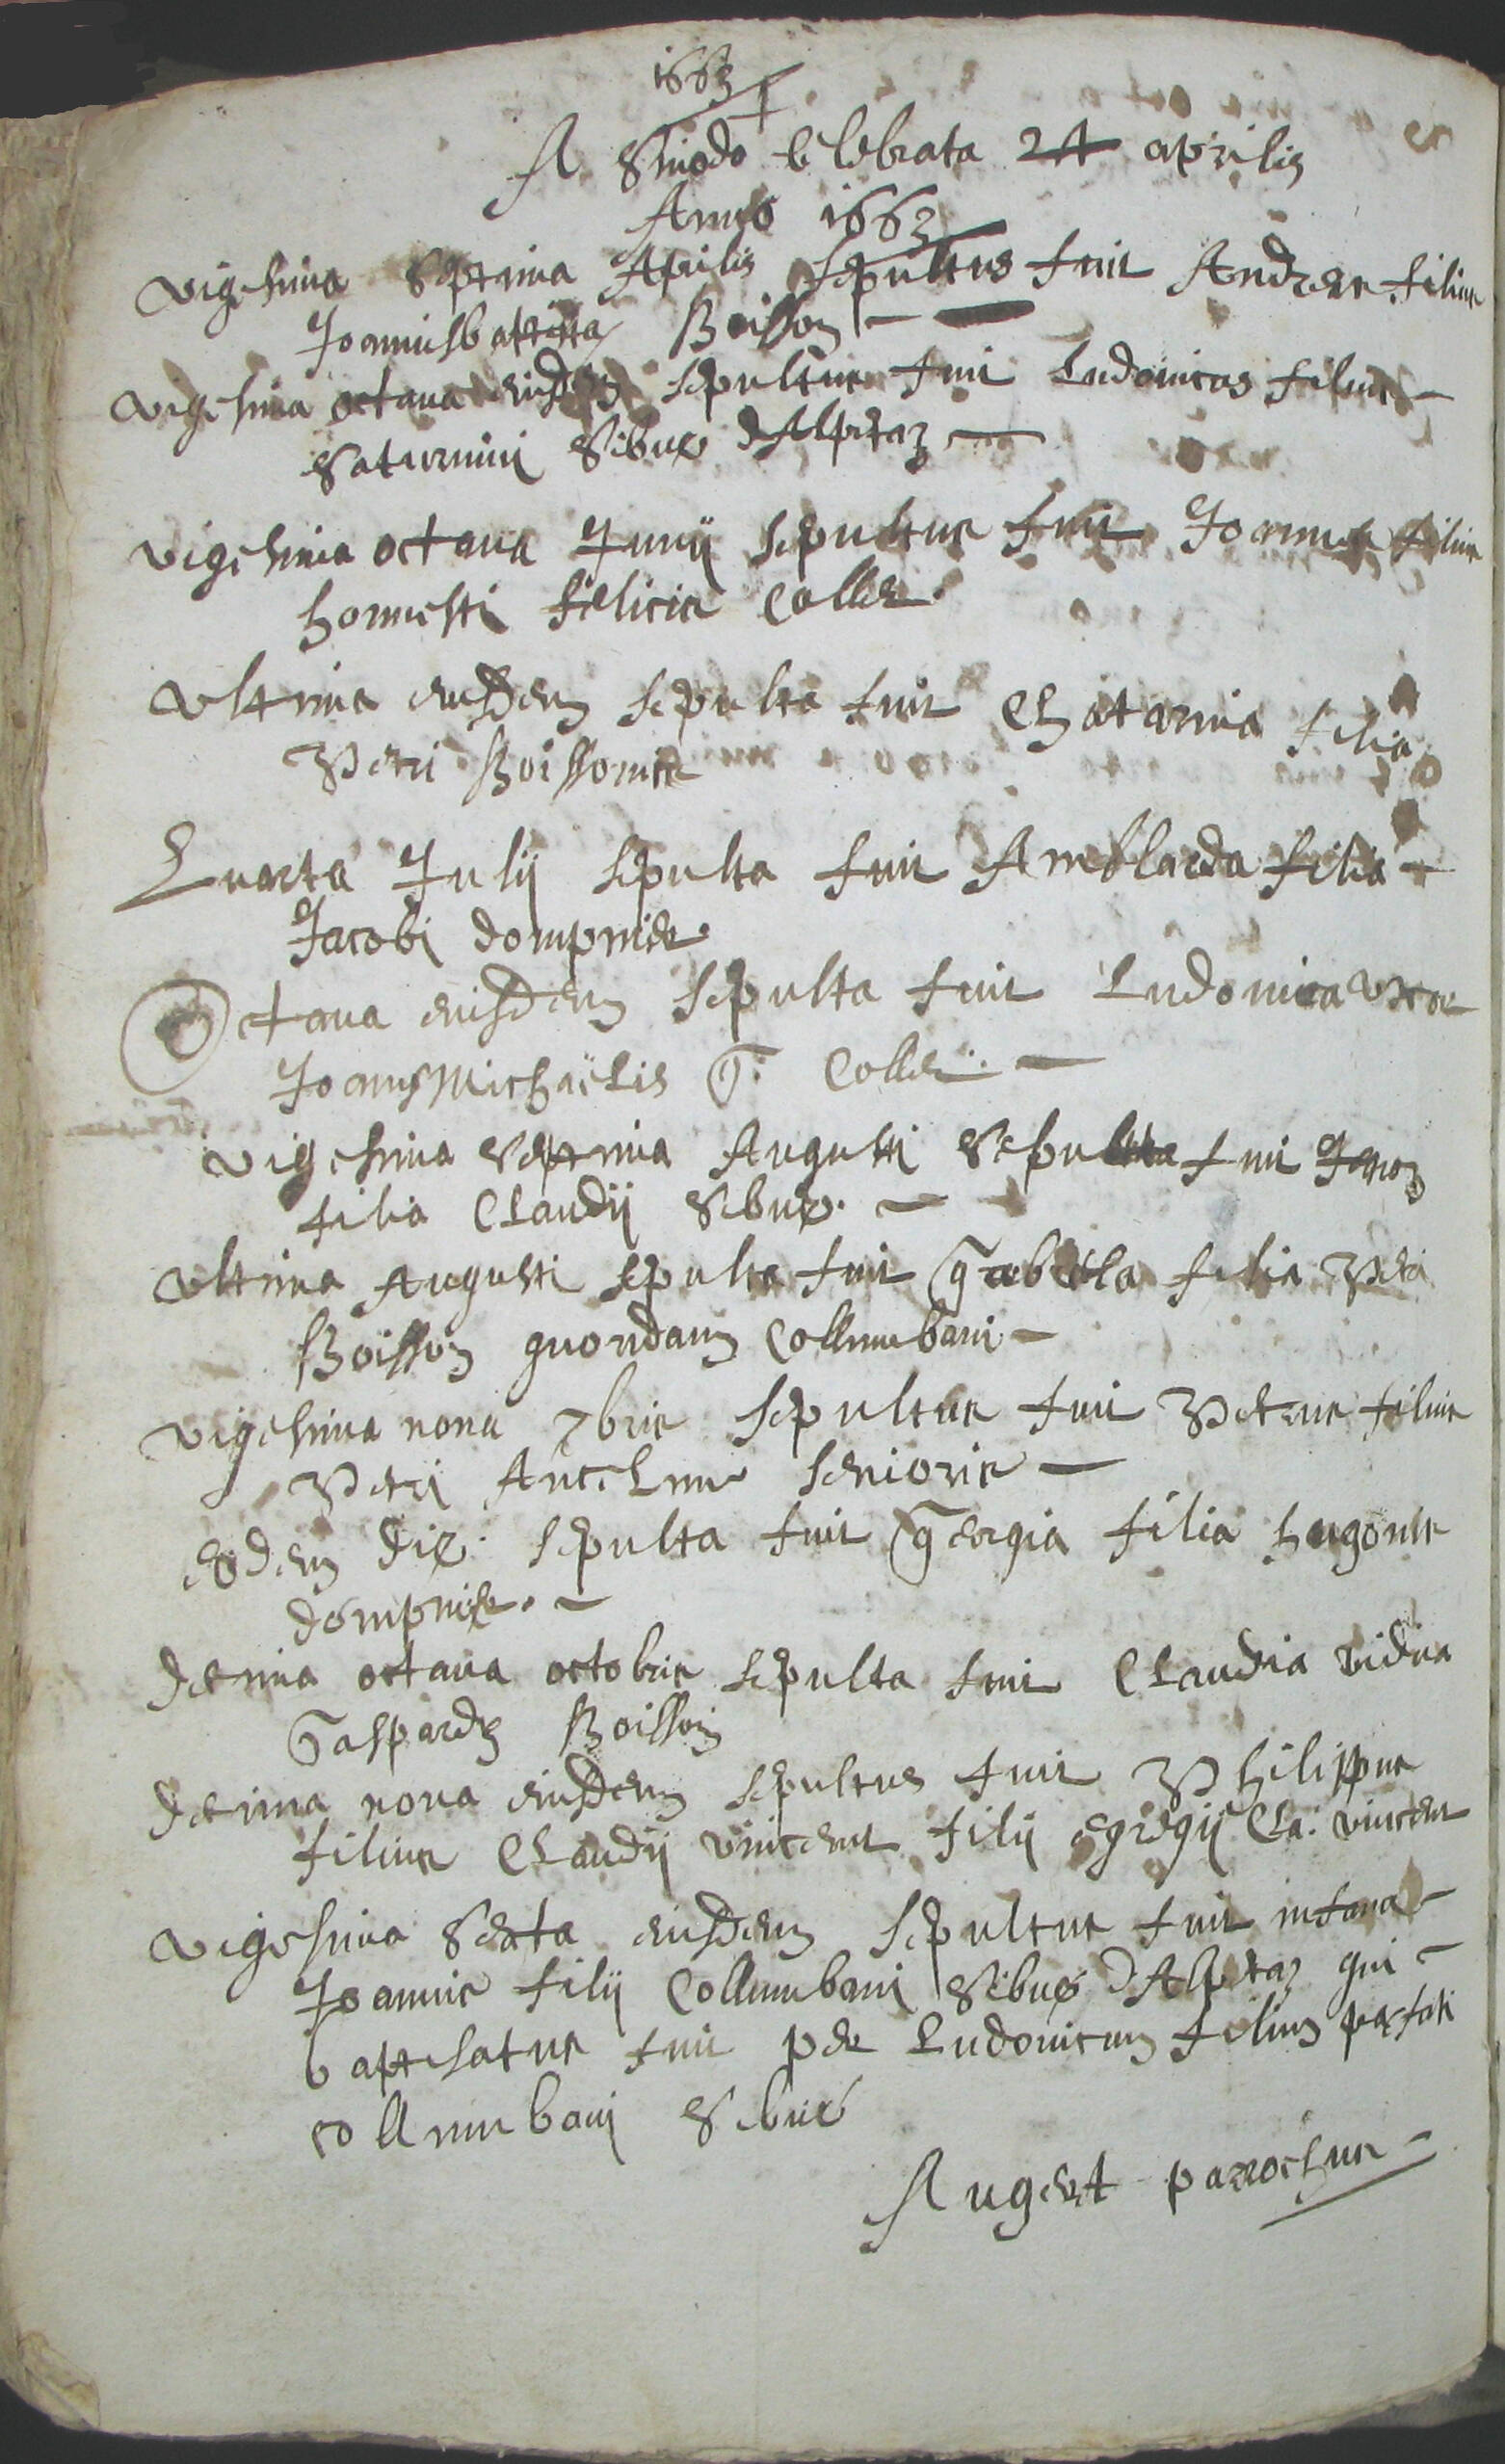 1663
A Sinodo Celebrata 24 aprilis
Anno 1663
vigesima septima Aprilis sepultus fuit Andreas filius
Joannisbattistæ Boisson
vigesima octaua eiusdem sepultus fuit Ludouicus filius
Saturnini Sibue dAlpetaz
vigesima octaua Junij sepultus fuit Joannes filius
honnesti felicis Collet
vltima eiusdem sepulta fuit Chatarina filia
Petri Boissonis
Quarta Julij sepulta fuit Amblarda filia
Jacobi dompnier
Octaua eiusdem sepulta fuit Ludouica vxor
Joannis Michaëlis G: Collet
vigesima septima Augusti Sepulta fuit
filia Claudij Sibue
vltima Augusti sepulta fuit gabriela filia Petri
Boisson quondam Collumbani
vigesima nona 7bris sepultus fuit Petrus filius
Petri Anselme senioris
eodem die sepulta fuit georgia filia hugonis
dompnier
decima octaua octobris sepulta fuit Claudia vidua
Gaspardi Boisson
decima nona eiusdem sepultus fuit Philippus
filius Claudij vincent filij egregij Cla: vincent
vigesima sexta eiusdem sepultus fuit infans
Joannis filij Collumbani Sibue dAlpetaz qui
baptisatus fuit per Ludouicum filium prefati
collumbani Sibue
Augert parrochus